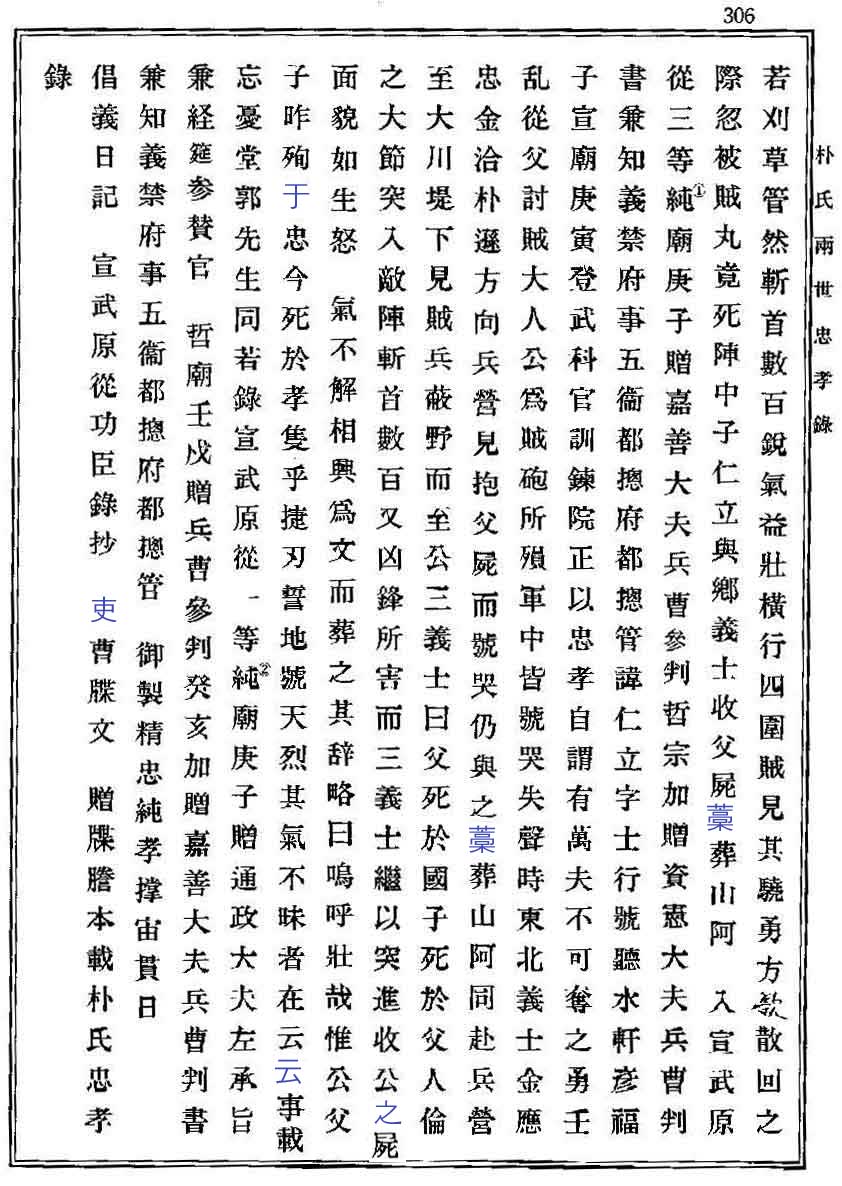 306
朴氏兩世忠孝錄
若刈草管然斬首數百銳氣益壯橫行四圍賊見其驍勇方欲散回之
際忽被賊丸竟死陣中子仁立與鄕義士收父屍藁葬山阿 入宣武原
從三等純①廟庚子贈嘉善大夫兵曹參判哲宗加贈資憲大夫兵曹判
書兼知義禁府事五衞都摠府都摠管諱仁立字士行號聽水軒彥福
子宣廟庚寅登武科官訓鍊院正以忠孝自謂有萬夫不可奪之勇壬
乱從父討賊大人公爲賊砲所殞軍中皆號哭失聲時東北義士金應
忠金洽朴遜方向兵營見抱父屍而號哭仍與之藁葬山阿同赴兵營
至大川堤下見賊兵蔽野而至公三義士曰父死於國子死於父人倫
之大節突入敵陣斬首數百又凶鋒所害而三義士繼以突進收公之屍
面貌如生怒 氣不解相興爲文而葬之其辞略曰嗚呼壯哉惟公父
子昨殉于忠今死於孝隻乎捷刃誓地號天烈其氣不昧者在云云事載
忘憂堂郭先生同若錄宣武原從一等純②廟庚子贈通政大夫左承旨
兼経筵参賛官 哲廟壬戌贈兵曹參判癸亥加贈嘉善大夫兵曹判書
兼知義禁府事五衞都摠府都摠管 御製精忠純孝撑宙貫日
倡義日記 宣武原從功臣錄抄 吏曹牒文 贈牒謄本載朴氏忠孝
錄